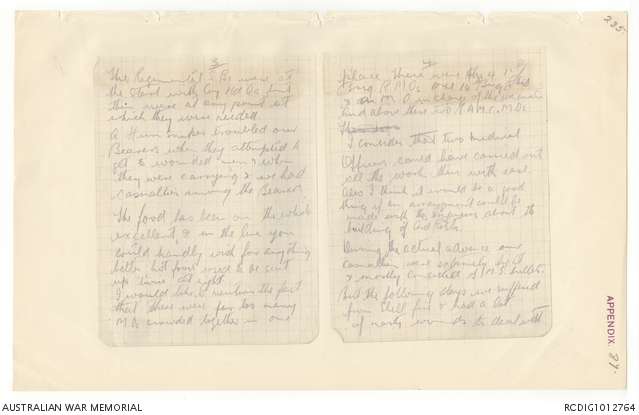 235
3
The Regimental S. Bs were at
the Stand with Coy Hd Qs, but
there were at any point at
which they were needed.
A Hun sniper troubled our
Bearers when they attempted to
get to wounded men & when
they were carrying & we had
casualties among the Bearers
The food has been on the whole
excellent, & in the line you
could hardly wish for anything
better hot food used to be sent
up twice at night.
I would like to mention the fact
that there were far too many
M.Os crowded together in one
4
place. There were the 4
Brig R.M.Os 10 Brig
& an M.O. in charge of
and above these two A.A.M.C. M.Os.
I consider that two medical
Officers could have carried out
all the work there with ease.
Also I think it would be a good
thing if an arrangement could be
made with the engineers about the
building of Aid Posts.
During the actual advance our
casualties were extremely light
& mostly consisted of M.G. bullets.
But the following days we suffered
from shell fire & had a lot
of nasty wounds to deal with
APPENDIX. 24.
AUSTRALIAN WAR MEMORIAL
RCDIG1012764